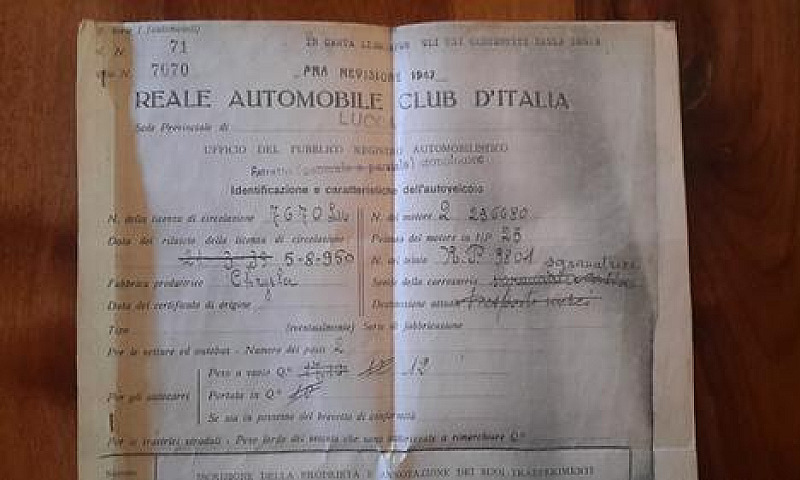 Serie I (automobili)
N. 71
IN CARTA LIBERA PER GLI USI CONSENTITI DALLA LEGGE
N. 7670
PRA REVISIONE 1947
REALE AUTOMOBILE CLUB D'ITALIA
Sede Provinciale di LUCCA
UFFICIO DEL PUBBLICO REGISTRO AUTOMOBILISTICO
Estratto (generale o parziale) cronologico
Identificazione e caratteristiche dell'autoveicolo
N. della licenza di circolazione 7670 Lu
Data del rilascio della licenza di circolazione:
5-8-950
Fabbrica produttrice Chrysler
Data del certificato di origine
N. del motore 2 236680
Potenza del motore in HP 23
N. del telaio R.P 9801
Scelta della carrozzeria sgranatrice
Destinazione attuale Trasporto merci
Tipo (eventualmente) Serie di fabbricazione
Per le vetture ed autobus - Numero dei posti 2
Per gli autocarri
Peso a vuoto Q.li 12
Portata in Q.li 10
Se sia in possesso del brevetto di conformità
Per le trattrici stradali - Peso lordo dei veicoli che sono autorizzate a rimorchiare Q.li
ISCRIZIONE DELLA PROPRIETÀ E ANNOTAZIONE DEI SUOI TRASFERIMENTI